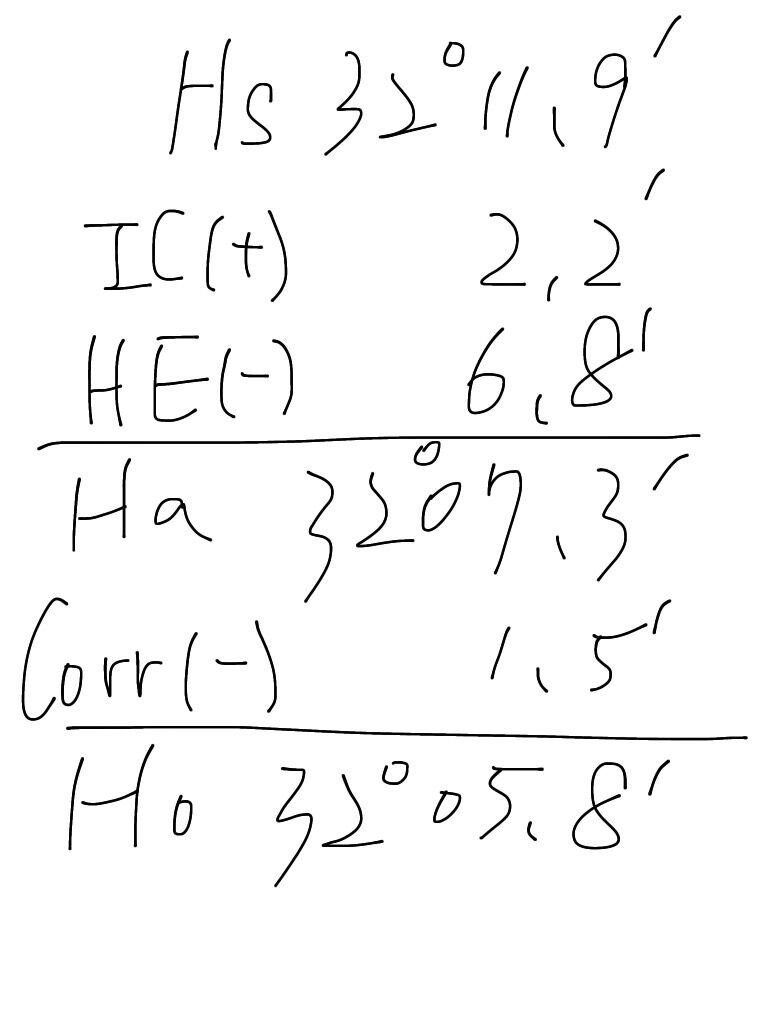 Hs 32°11.9'
IC(+) 2.2'
HE(-) 6.8'
Ha 32°07.3'
Corr(-) 1.5'
Ho 32°05.8'